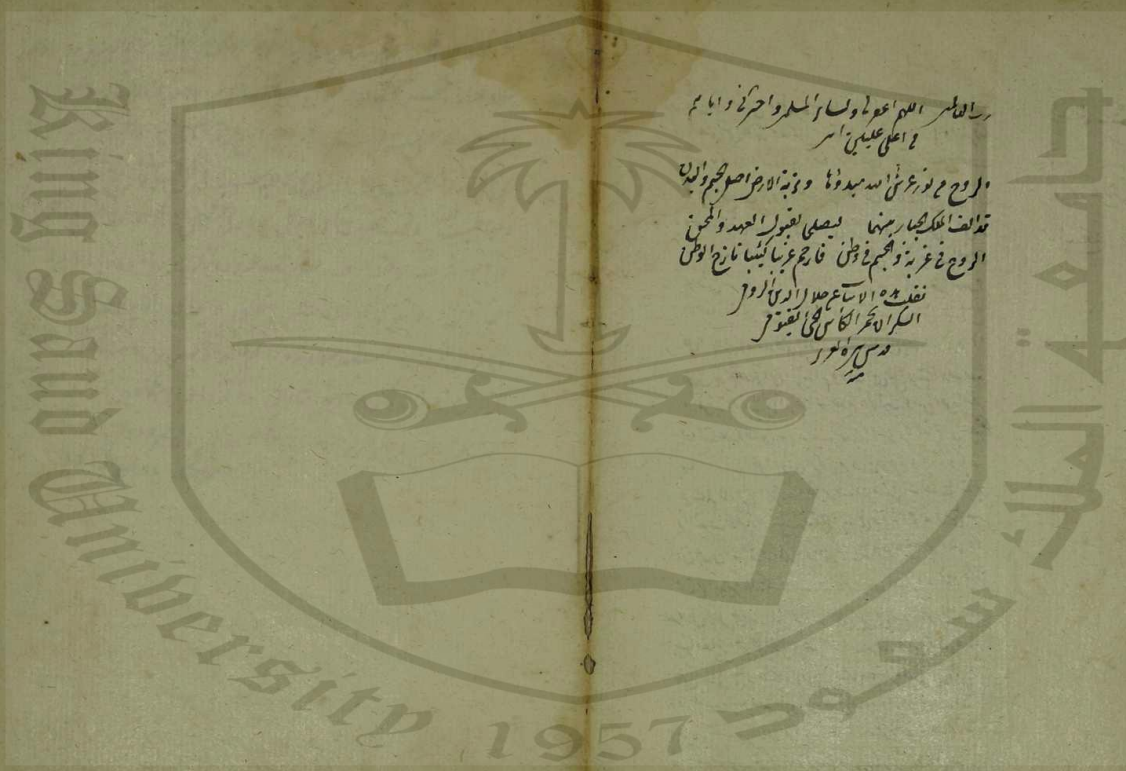 رب العالمين اللهم اعف ولسائر المسلمين واحشرنا واياهم
في اعلى عليين
الروح من نور عرش الله مبدؤها وتربة الارض اصل الجسم والبدن
قد الف الملك الجبار بينهما ليصلحا لقبول العهد والمحن
الروح في غربة والجسم في وطن فارحم غريبا كئيبا نازح الوطن
نقلت هذه الابيات عن جلال الدين الرومي
السكران بخمر الكأس
قدس سره العزيز
King Saud University 1957
جامعة الملك سعود